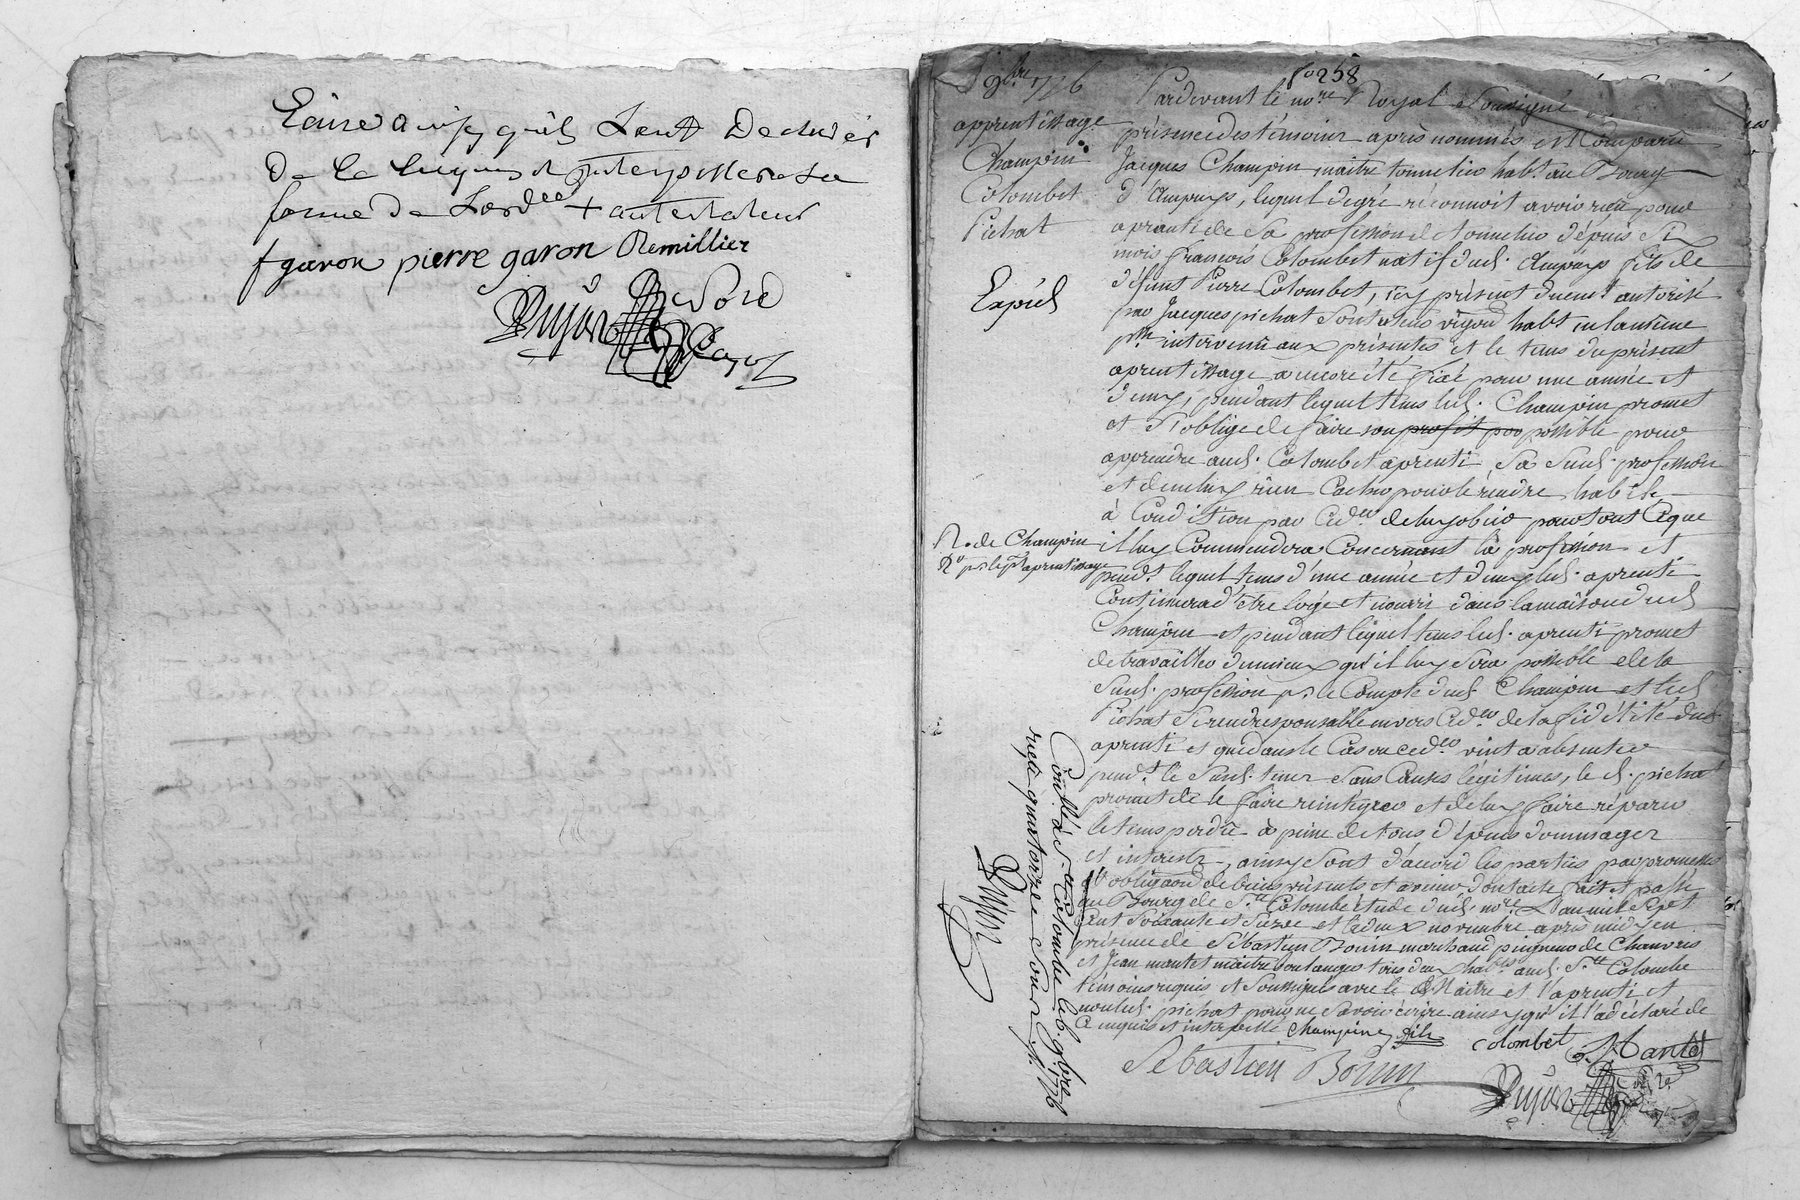 Ecrire ainsy qu'ils l'ont déclaré
de ce requis et interpellés en la
forme de l'ord.ce + autentateur
f garon pierre garon Remillier
Dujar
9bre 1776
apprentissage
Champin
Colombet
Pichat
Expéd
fo 258
Pardevant le no.re Royal soussigné
présence des témoins après nommés est Comparu
Jacques Champin, maitre tonnelier hab.t au Bourg
d'Ampuys, lequel degré réconnoit avoir reçu pour
aprentif de Sa profession de tonnelier dépuis Six
mois françois Colombet natif dud. Ampuys fils de
défunt Pierre Colombet, icy présent duem.t autorisé
par Jacques pichat
intervenu aux présentes et le tems du présent
aprentissage a encore été fixé pour une année et
demy, pendant lequel tems led. Champin promet
et s'oblige de faire son profit par possible pour
apprendre aud. Colombet aprenti Sa Susd. profession
et de ne luy rien Cacher pour le rendre habile
à Condition par Ced.er de luy obeir pour tout Ceque
il luy Commendera Concernant la profession et
pend.t lequel tems d'une année et demy led. aprenti
Continuera d'être logé et nourri dans la maison dud
Champin et pendant lequel tems led. aprenti promet
de travailler du mieux qu'il luy sera possible de la
Susd. profession p.r le Compte dud. Champin et led
Pichat se rend responsable envers Ced.er de la fidélité dud
aprenti et que dans le Cas ou ced.er vint a absenter
pend.t le Susd. tems Sans Causes légitimes, le d. pichat
promet de le faire reintégrer et de luy faire réparer
le tems perdu à peine de tous dépens dommages
et interests, ainsy sont d'accord les parties par promesses
obligaon de biens présents et avenir dont acte fait et passé
au Bourg de S.te Colombe étude dud. no.re L'an mil sept
cent Soixante et Seize et le deux novembre après midy en
présence de Sébastien Bonin marchand peigneur de Chanvres
et Jean mantet maitre boulanger tous deux hab.ts aud. S.te Colombe
témoins requis et Soussignés avec le Maitre et l'aprenti et
non led. pichat pour ne Savoir écrire ainsy qu'il l'a déclaré de
Ce enquis et interpellé Champin fils
Colombet J. Mantet
Sebastien Bonin
Dujar
R. de Champin
p.r le p.t aprentissage
Con.llé à S.te Colombe le 6. 9bre 1776
reçu quatorze sous
Dujar